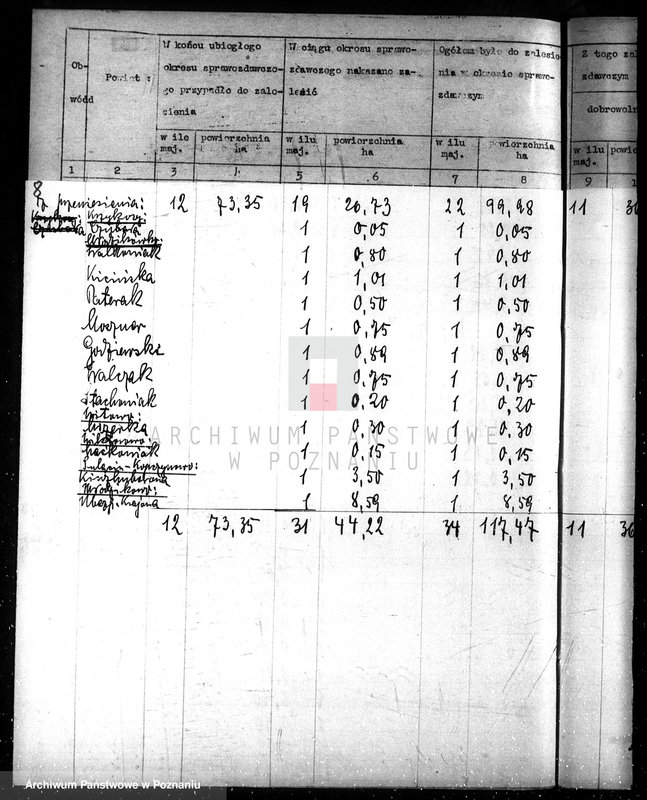 Ob-
wódd
Powiat :
W końcu ubiegłego
okresu sprawozdawczo-
go przypadło do zale-
sienia
W ciągu okresu sprawo-
zdawczego nakazano za-
lesić
Ogółem było do zalesie-
nia w okresie sprawo-
zdawczym
Z tego zal
zdawczym
dobrowoln
w ile maj. powierzchnia ha w ilu maj. powierzchnia ha w ilu maj. powierzchnia ha w ilu maj. powie
1 2 3 4 5 6 7 8 9 1
Z przeniesienia: 12 73,35 19 20,73 22 99,98 11 30
1 0,05 1 0,05
Walkowiak 1 0,80 1 0,80
Kicińska 1 1,01 1 1,01
Raterak 1 0,50 1 0,50
1 0,75 1 0,75
Godziewski 1 0,89 1 0,89
Walczak 1 0,75 1 0,75
Stachowiak 1 0,20 1 0,20
1 0,30 1 0,30
1 0,15 1 0,15
1 3,50 1 3,50
1 8,59 1 8,59
12 73,35 31 44,22 34 117,47 11 30
ARCHIWUM PAŃSTWOWE
W POZNANIU
Archiwum Państwowe w Poznaniu